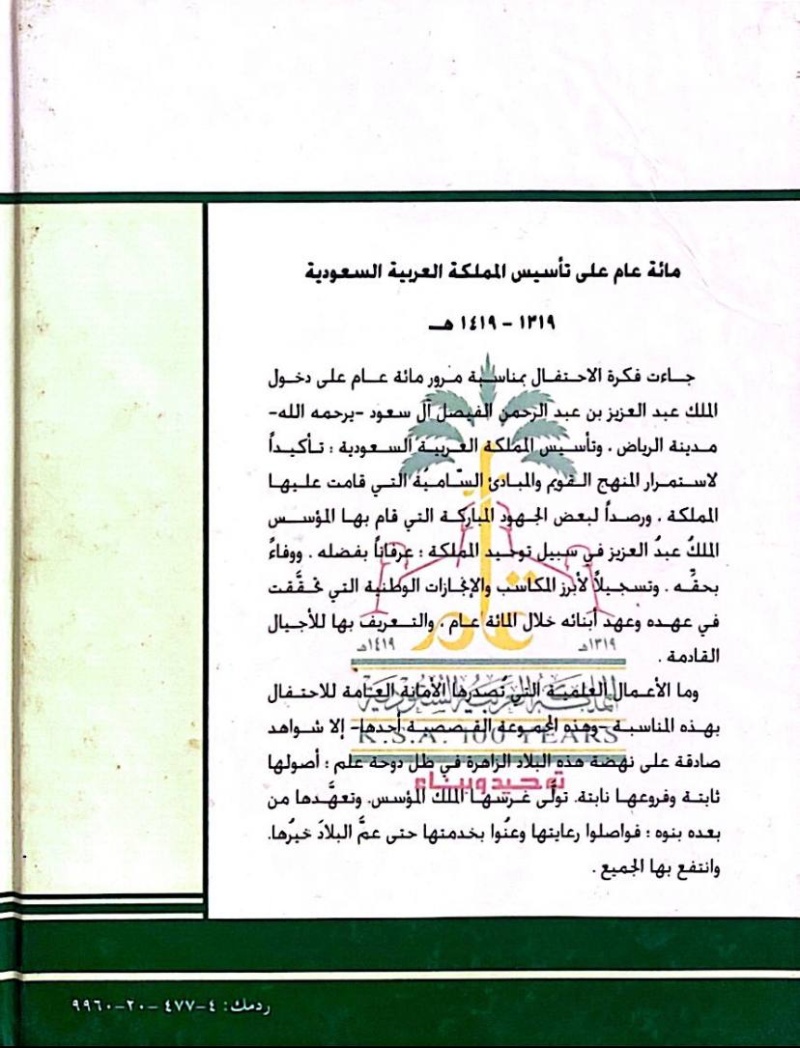 مائة عام على تأسيس المملكة العربية السعودية
١٣١٩ - ١٤١٩ هـ
جاءت فكرة الاحتفال بمناسبة مرور مائة عام على دخول
الملك عبد العزيز بن عبد الرحمن الفيصل آل سعود -يرحمه الله-
مدينة الرياض ، وتأسيس المملكة العربية السعودية ؛ تأكيداً
لاستمرار المنهج القويم والمبادئ السّامية التي قامت عليها
المملكة ، ورصداً لبعض الجهود المباركة التي قام بها المؤسس
الملكُ عبدُ العزيز في سبيل توحيد المملكة ؛ عرفاناً بفضله ، ووفاءً
بحقِّه ، وتسجيلاً لأبرز المكاسب والإنجازات الوطنية التي تحقَّقت
في عهده وعهد أبنائه خلال المائة عام ، والتعريف بها للأجيال
القادمة .
وما الأعمال العلمية التي تُصدرها الأمانة العامة للاحتفال
بهذه المناسبة -وهذه المجموعة القصصية أحدها- إلا شواهد
صادقة على نهضة هذه البلاد الزاهرة في ظل دوحة علم ؛ أصولها
ثابتة وفروعها نابتة. تولَّى غرسها الملك المؤسس، وتعهَّدها من
بعده بنوه ؛ فواصلوا رعايتها وعنُوا بخدمتها حتى عمَّ البلادَ خيرُها،
وانتفع بها الجميع .
عام
١٣١٩هـ ١٤١٩هـ
المملكة العربية السعودية
K.S.A. 100 YEARS
توحيد وبناء
ردمك: ٤-٤٧٧-٢٠-٩٩٦٠